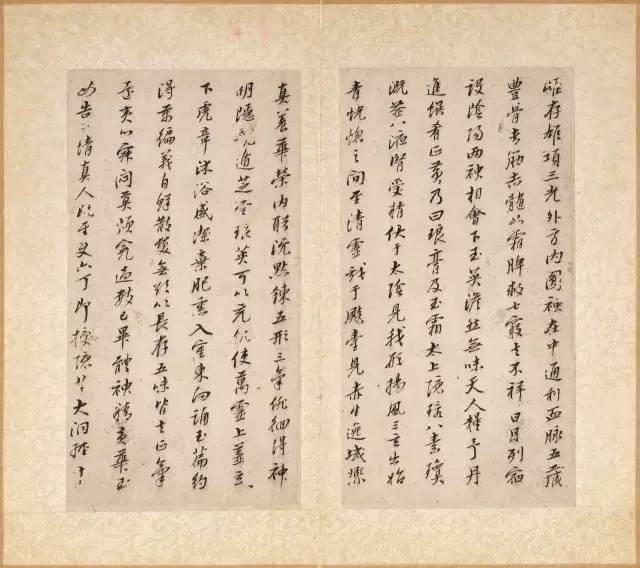 雌存雄項三光外方內圓神在中通利血脈五藏
豐骨青筋赤髓如霜脾救七竅去不祥日月列宿
設陰陽兩神相會下玉英澹然無味天人糧子丹
進饌肴正黃乃曰琅膏及玉霜太上隱環八素瓊
溉益八液腎受精伏于太陰見我形揚風三玄出始
青恍惚之間至清靈戲于飈臺見赤生逸域熙
真養華榮內盼沉默鍊五形三氣徘徊得神
明隱龍遁芝雲琅英可以充飢使萬靈上蓋玄
下虎章沐浴盛潔棄肥薰入室東向誦玉篇約
得萬遍義自鮮散髮無欲以長存五味皆至正氣
還夷心寂悶莫煩冤過數已畢體神精黃華玉
女告子情真人既至使六丁即授隱芝大洞經十